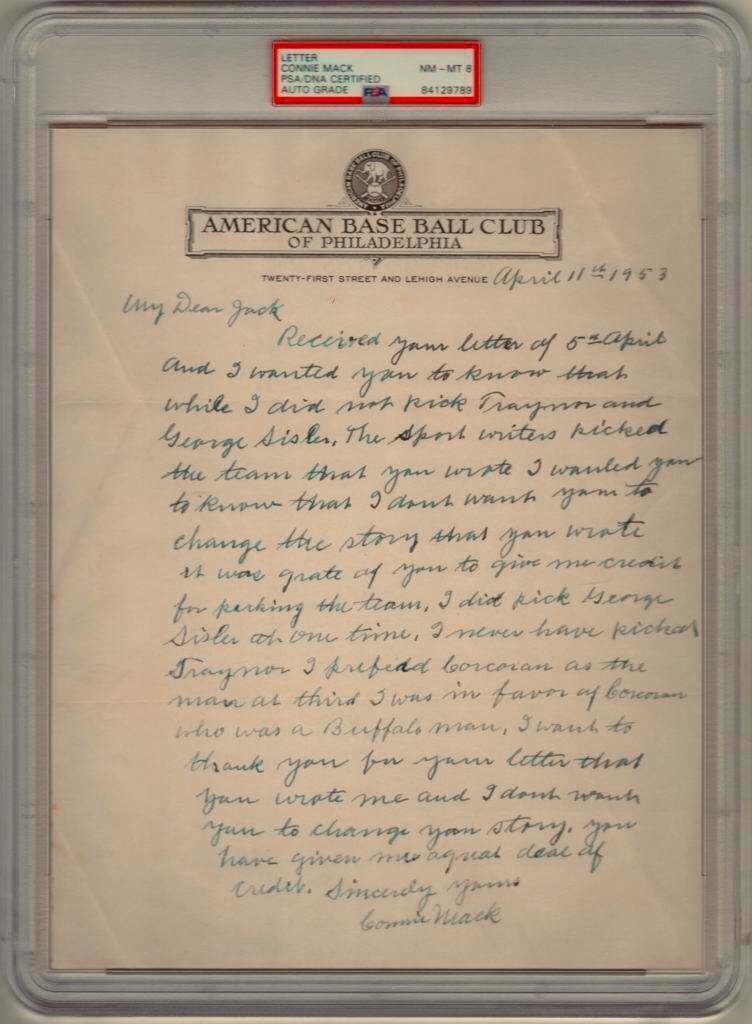 LETTER
CONNIE MACK NM - MT 8
PSA/DNA CERTIFIED
AUTO GRADE PSA 84129789
AMERICAN BASE BALL CLUB OF PHILADELPHIA
AMERICAN BASE BALL CLUB
OF PHILADELPHIA
TWENTY-FIRST STREET AND LEHIGH AVENUE April 11th 1953
My Dear Jack
Received your letter of 5th April
and I wanted you to know that
while I did not pick Traynor and
George Sisler, The sport writers picked
the team that you wrote I wanted you
to know that I dont want you to
change the story that you wrote
it was grate of you to give me credit
for picking the team, I did pick George
Sisler at one time, I never have picked
Traynor I preferd Corcoran as the
man at third I was in favor of Corcoran
who was a Buffalo man, I want to
thank you for your letter that
you wrote me and I dont want
you to change your story, you
have given me a great deal of
credit. Sincerely yours
Connie Mack